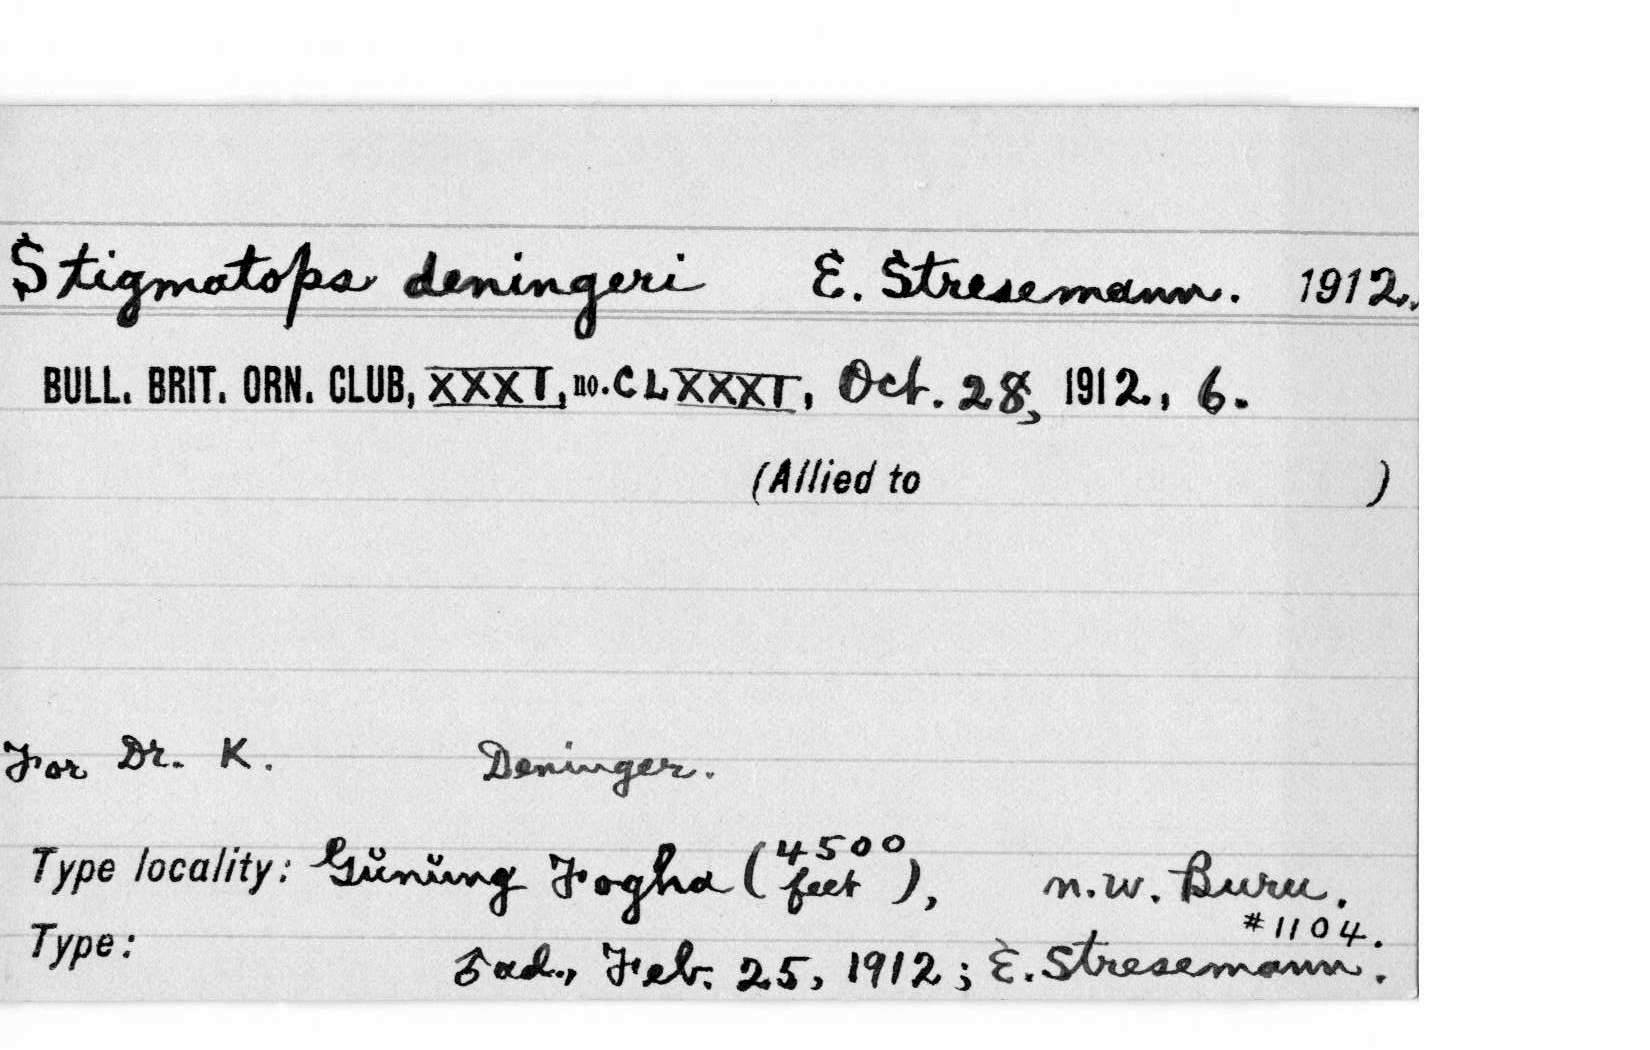 Stigmatops deningeri E. Stresemann. 1912.
BULL. BRIT. ORN. CLUB, XXXI, no. CLXXXI, Oct. 28, 1912., 6.
(Allied to )
For Dr. K. Deninger.
Type locality: Gŭnŭng Fogha (4500 feet), n.w. Buru.
#1104.
Type: ad., Feb. 25, 1912; E. Stresemann.